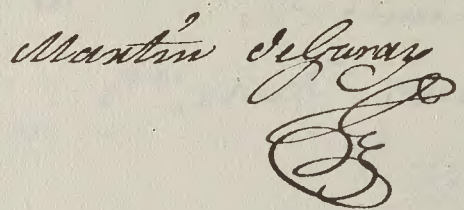 Martín de Garay